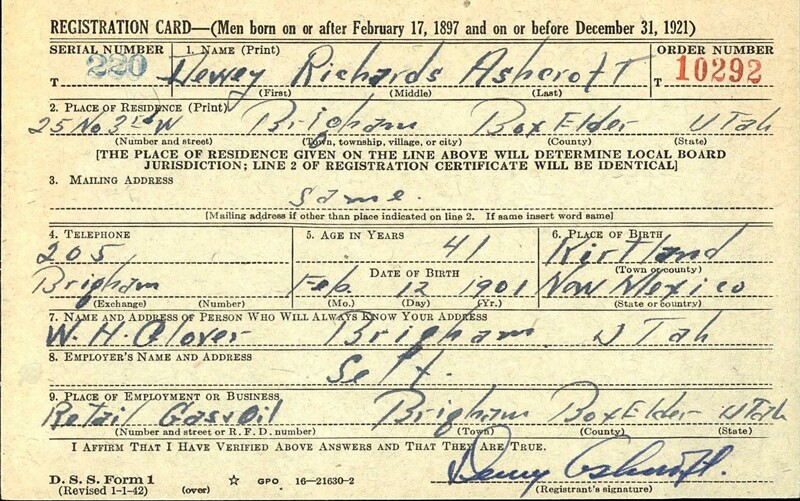 REGISTRATION CARD—(Men born on or after February 17, 1897 and on or before December 31, 1921)
SERIAL NUMBER 1. NAME (Print) ORDER NUMBER
T 220 Dewey Richards Ashcroft T 10292
(First) (Middle) (Last)
2. PLACE OF RESIDENCE (Print)
25 No 3rd W Brigham Box Elder Utah
(Number and street) (Town, township, village, or city) (County) (State)
[THE PLACE OF RESIDENCE GIVEN ON THE LINE ABOVE WILL DETERMINE LOCAL BOARD
JURISDICTION; LINE 2 OF REGISTRATION CERTIFICATE WILL BE IDENTICAL]
3. MAILING ADDRESS
Same.
[Mailing address if other than place indicated on line 2. If same insert word same]
4. TELEPHONE 5. AGE IN YEARS 6. PLACE OF BIRTH
205 41 Kirtland
DATE OF BIRTH (Town or county)
Brigham Feb. 12 1901 New Mexico
(Exchange) (Number) (Mo.) (Day) (Yr.) (State or country)
7. NAME AND ADDRESS OF PERSON WHO WILL ALWAYS KNOW YOUR ADDRESS
W. H. Glover Brigham Utah
8. EMPLOYER'S NAME AND ADDRESS
Self.
9. PLACE OF EMPLOYMENT OR BUSINESS
Retail Gas & Oil Brigham Box Elder Utah
(Number and street or R. F. D. number) (Town) (County) (State)
I AFFIRM THAT I HAVE VERIFIED ABOVE ANSWERS AND THAT THEY ARE TRUE.
D. S. S. Form 1 Dewey Ashcroft.
(Revised 1-1-42) (over) ☆ GPO 16—21630-2 (Registrant's signature)